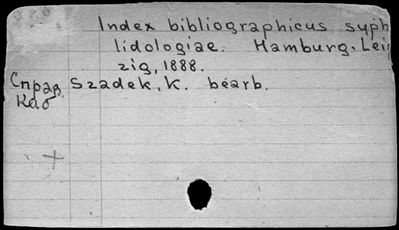 Index bibliographicus syph
lidologiae. Hamburg-Leip
zig, 1888.
Справ. Szadek, K. bearb.
Каб